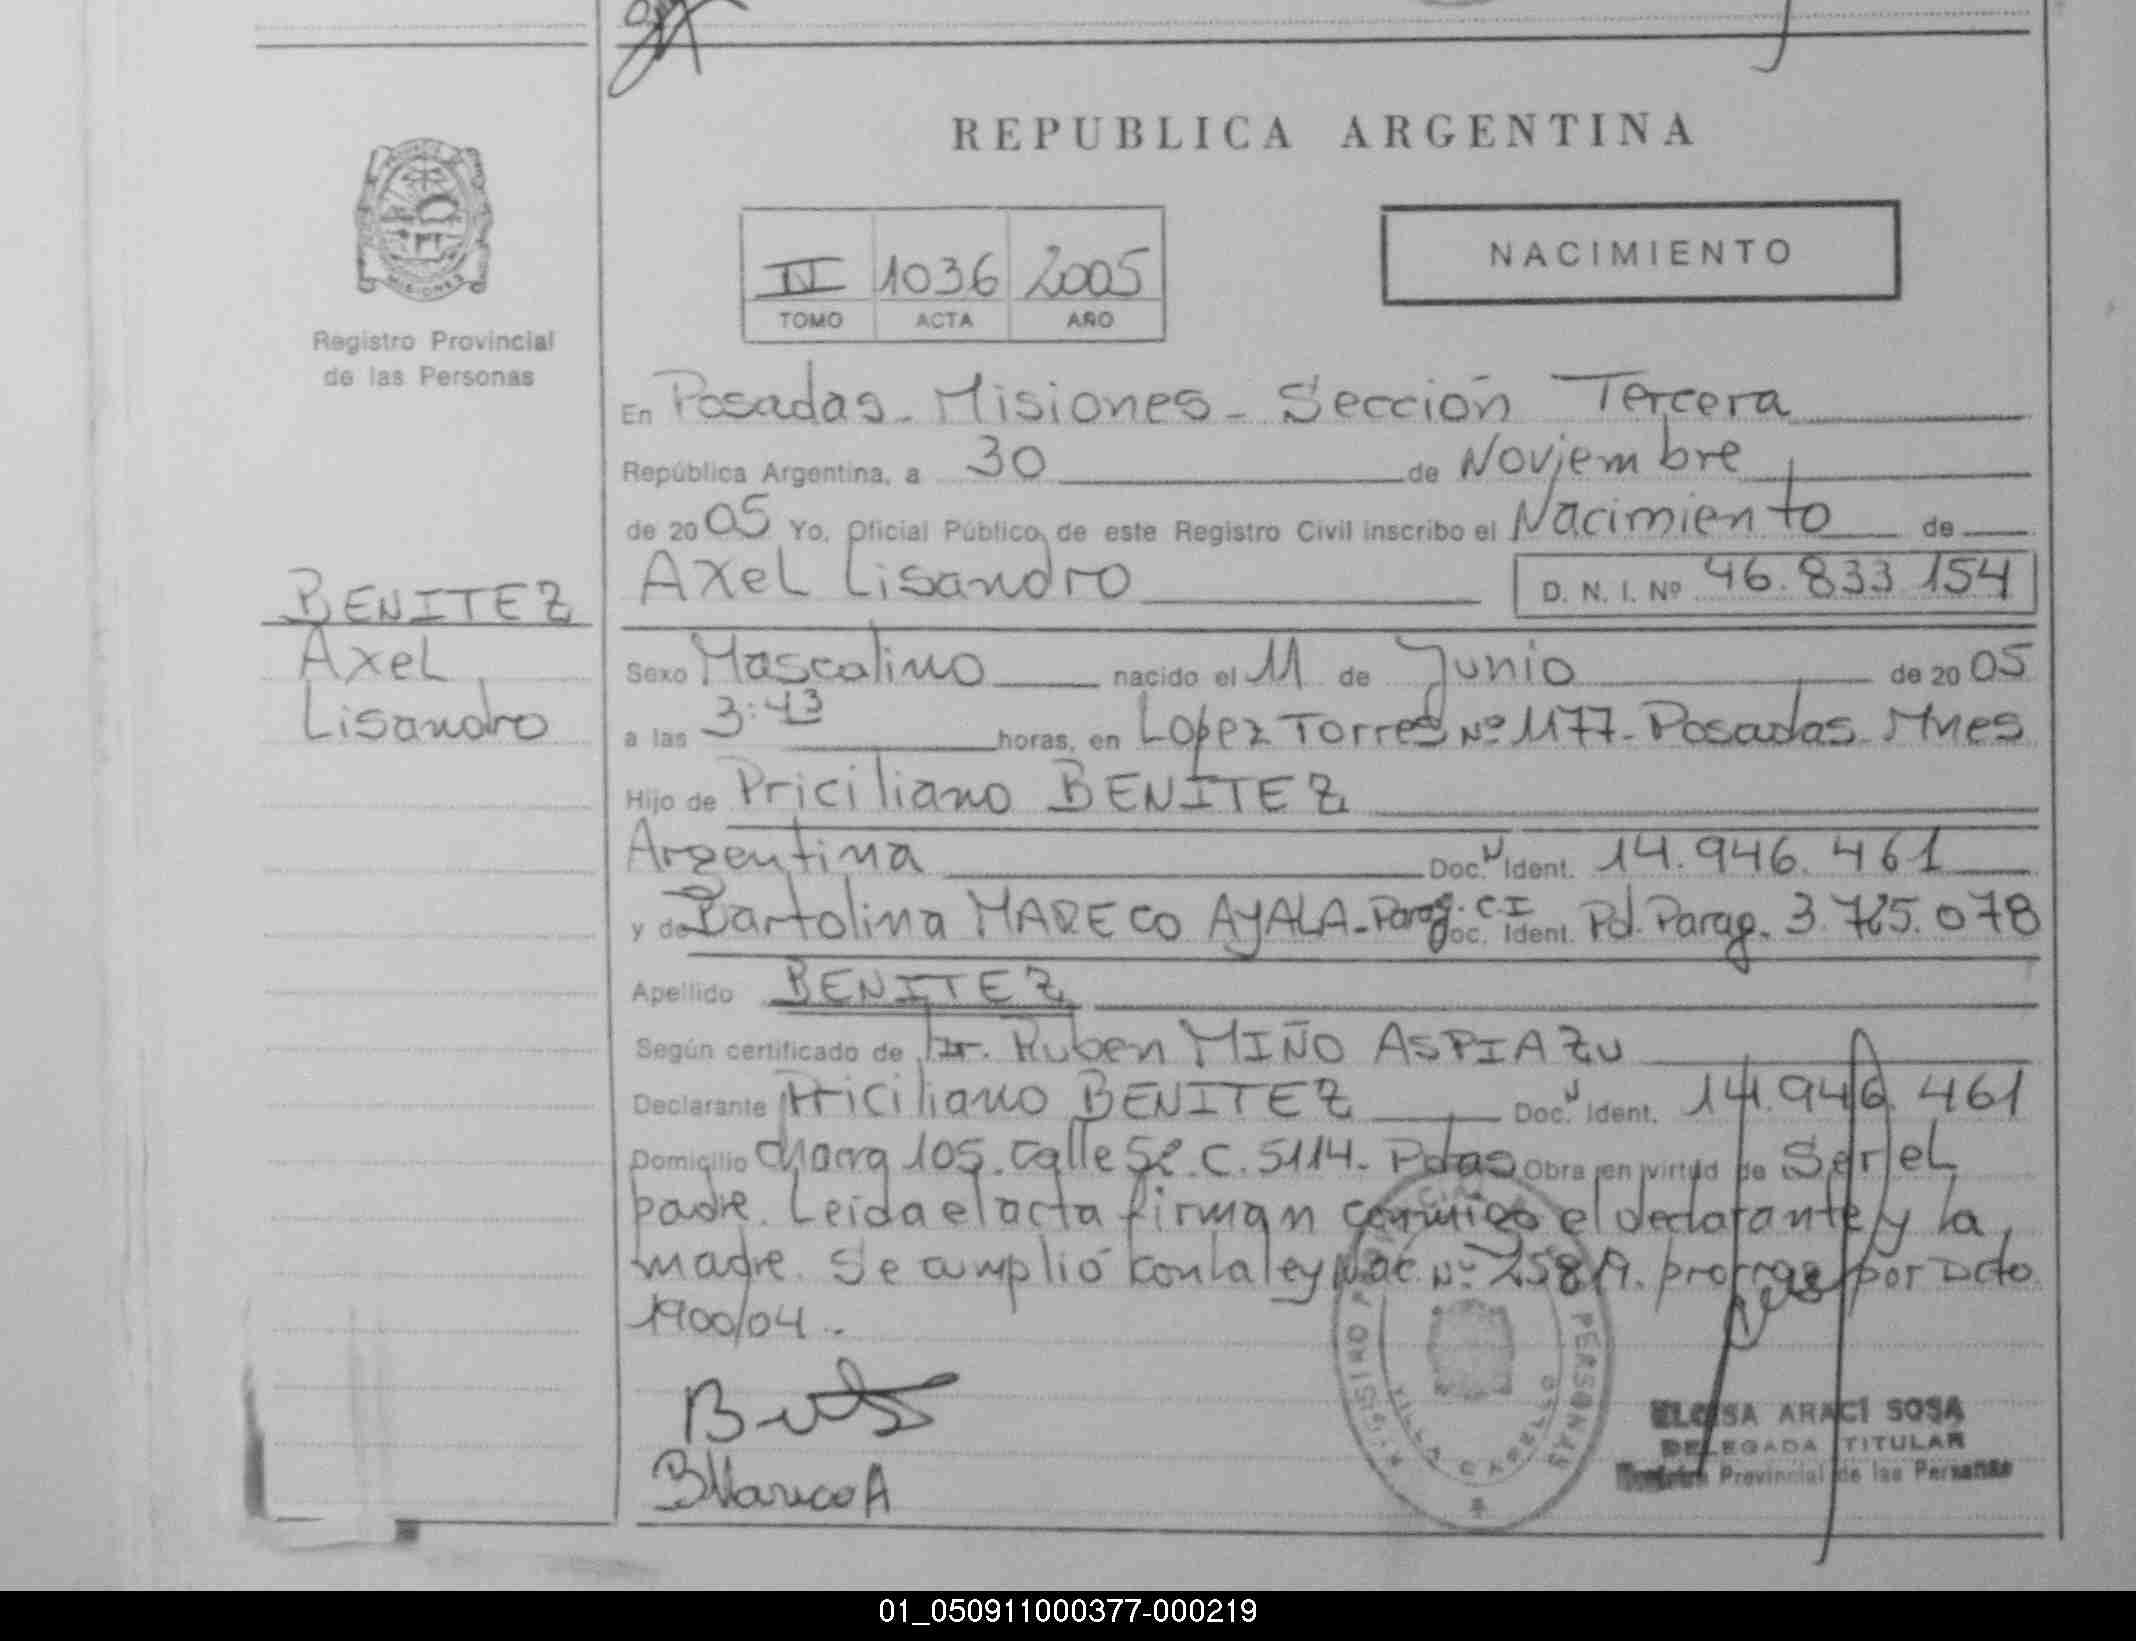 REPUBLICA ARGENTINA
NACIMIENTO
1036 2005
TOMO ACTA AÑO
Registro Provincial
de las Personas
BENITEZ
Axel
Lisandro
En Posadas - Misiones - Sección Tercera
República Argentina, a 30 de Noviembre
de 2005 Yo, Oficial Público, de este Registro Civil inscribo el Nacimiento de
Axel Lisandro D. N. I. Nº 46.833.154
Sexo Masculino nacido el 11 de Junio de 2005
a las 3:43 horas, en Lopez Torres Nº 1177 - Posadas - Mnes
Hijo de Priciliano BENITEZ
Argentina Doc. Ident. 14.946.461
y de Bartolina MARECO AYALA - Parag. C.I. Doc. Ident. Pol. Parag. 3.785.078
Apellido BENITEZ
Según certificado de Dr. Ruben MIÑO ASPIAZU
Declarante Priciliano BENITEZ Doc. Ident. 14.946.461
Domicilio Chacra 105. Calle 52. C. 5114. Pdas Obra en virtud de Ser el
padre. Leida el acta firman conmigo el declarante y la
madre. Se cumplió con la ley Nac. Nº 25819. prorrog por Dcto
1900/04.
BMarecoA
REGISTRO PROVINCIAL PERSONAS
VILLA CABELLO
ELOISA ARACI SOSA
DELEGADA TITULAR
Provincial de las Personas
01_050911000377-000219